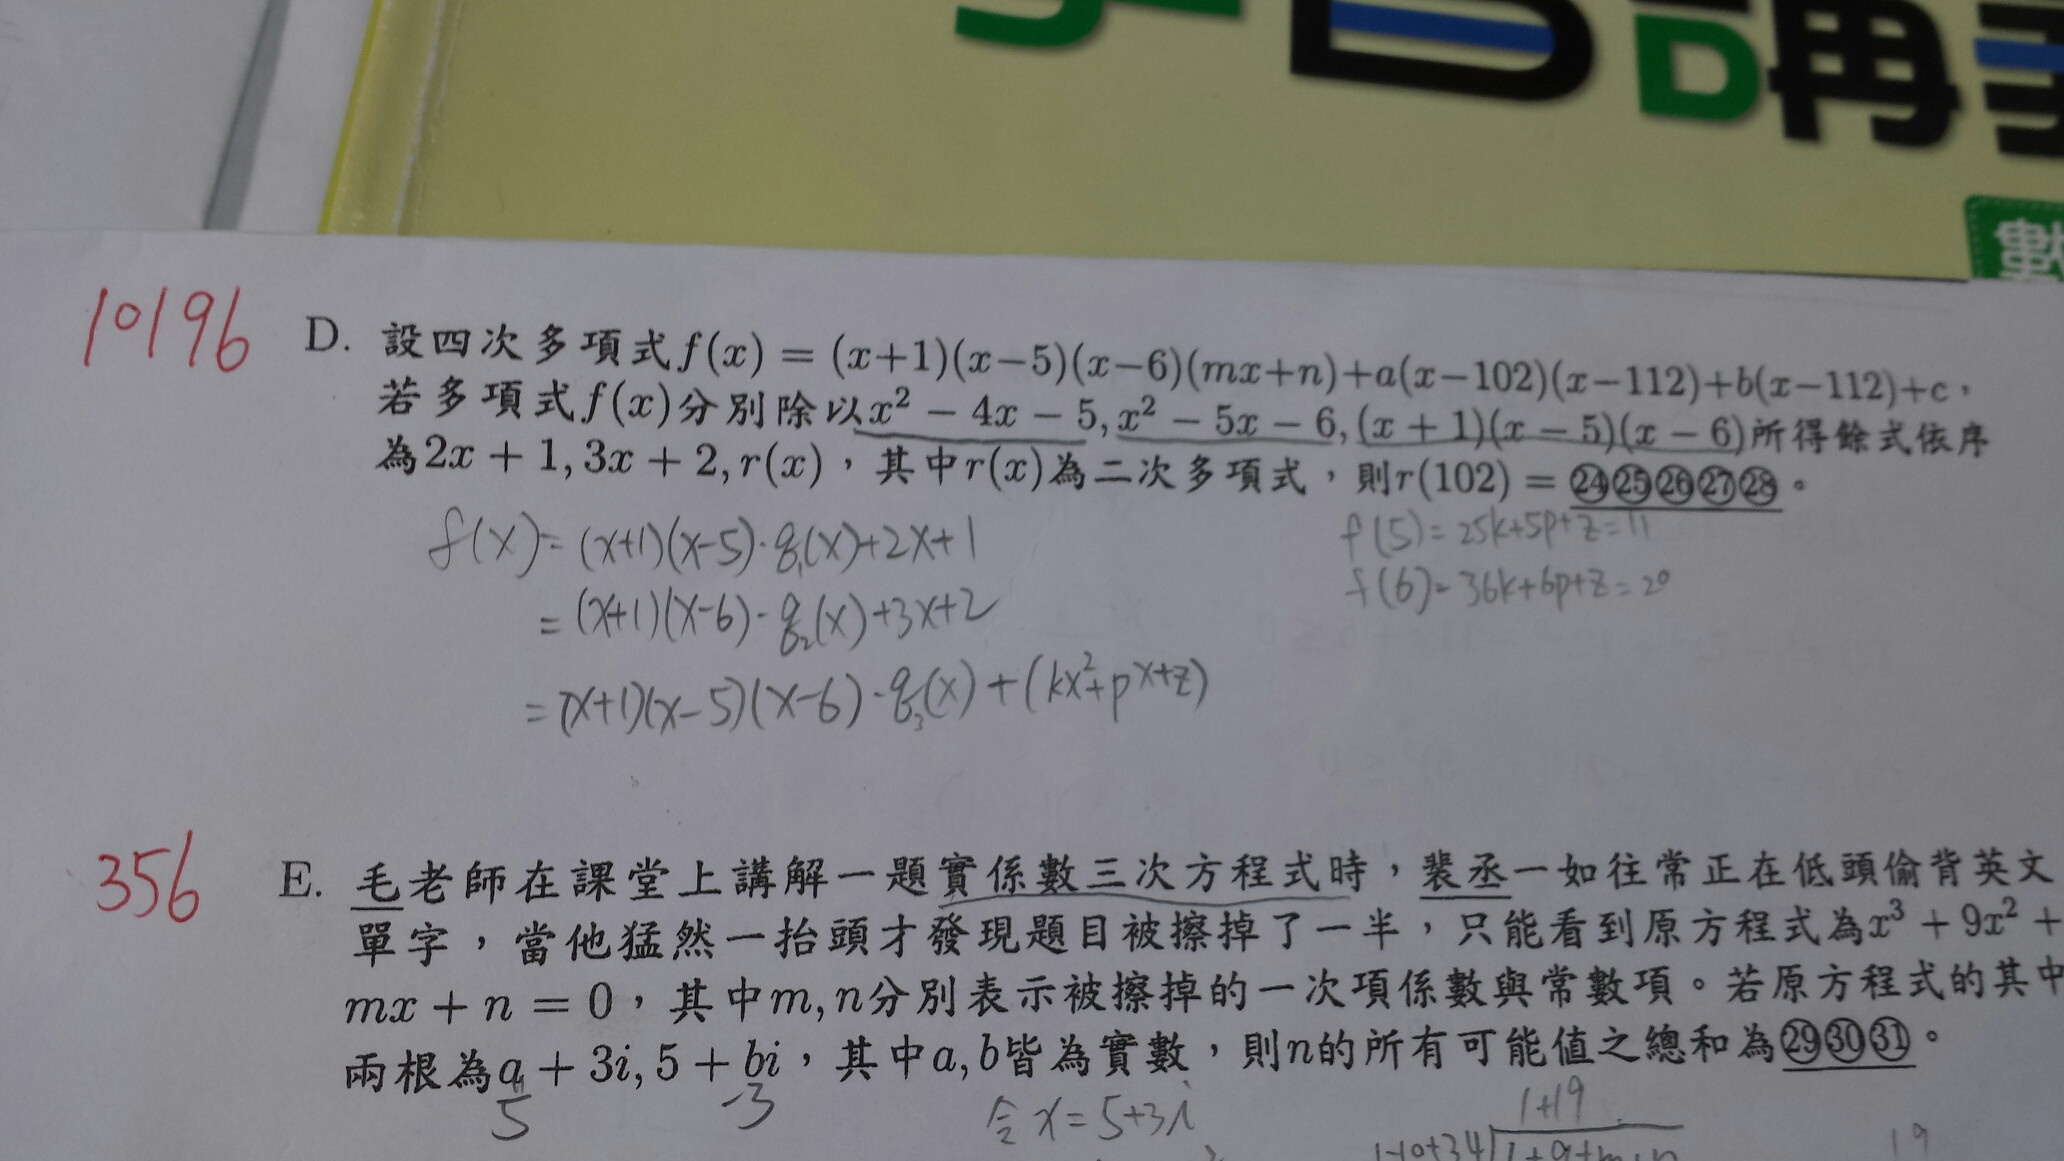 講
數
10196
D. 設四次多項式f(x) = (x+1)(x−5)(x−6)(mx+n)+a(x−102)(x−112)+b(x−112)+c，
若多項式f(x)分別除以x² − 4x − 5, x² − 5x − 6, (x + 1)(x − 5)(x − 6)所得餘式依序
為2x + 1, 3x + 2, r(x)，其中r(x)為二次多項式，則r(102) = ㉔㉕㉖㉗㉘。
f(x) = (x+1)(x-5)·q₁(x)+2x+1
= (x+1)(x-6)·q₂(x)+3x+2
= (x+1)(x-5)(x-6)·q₃(x)+(kx²+px+z)
f(5)=25k+5p+z=11
f(6)=36k+6p+z=20
356
E. 毛老師在課堂上講解一題實係數三次方程式時，裴丞一如往常正在低頭偷背英文
單字，當他猛然一抬頭才發現題目被擦掉了一半，只能看到原方程式為x³ + 9x² +
mx + n = 0，其中m, n分別表示被擦掉的一次項係數與常數項。若原方程式的其中
兩根為a + 3i, 5 + bi，其中a, b皆為實數，則n的所有可能值之總和為㉙㉚㉛。
5 -3
令 x = 5+3i
1+19
1-10+34 1+9+m+n
19